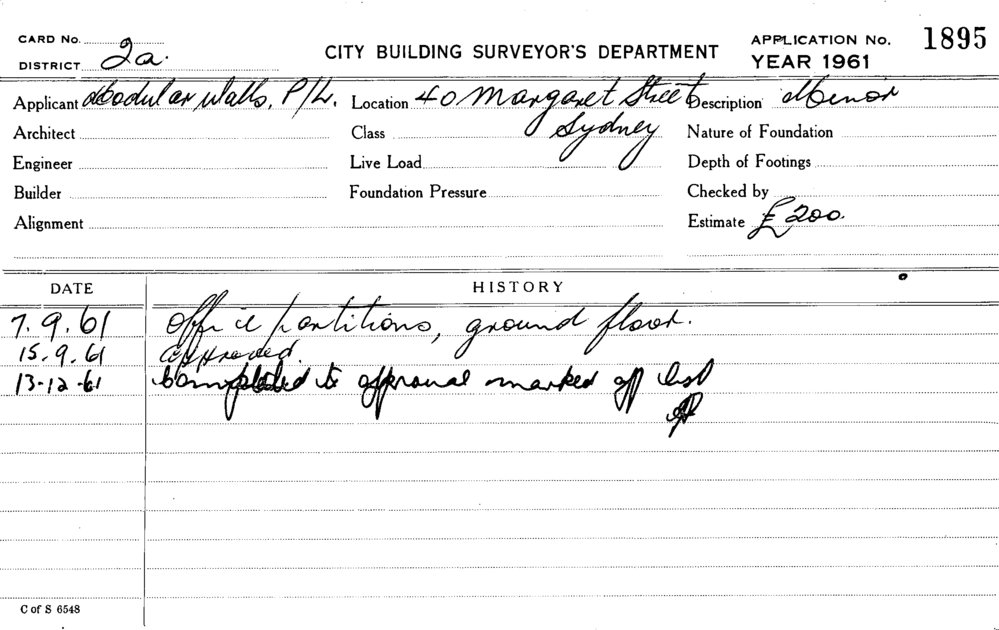 CARD No.
DISTRICT 2a.
CITY BUILDING SURVEYOR'S DEPARTMENT
APPLICATION No. 1895
YEAR 1961
Applicant Modular Walls, P/L. Location 40 Margaret Street Description Minor
Architect Class Sydney Nature of Foundation
Engineer Live Load Depth of Footings
Builder Foundation Pressure Checked by
Alignment Estimate £200.
DATE HISTORY
7.9.61 Office partitions, ground floor.
15.9.61 approved.
13-12-61 Completed to approval marked off list
C of S 6548